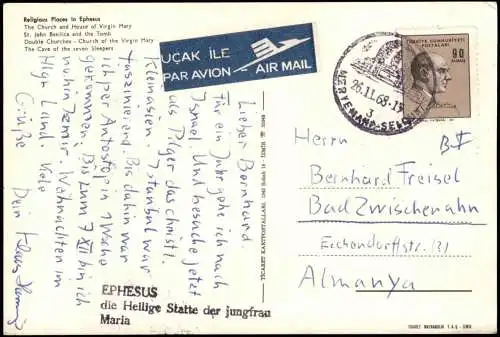 Religious Places in Ephesus
The Church and House of Virgin Mary
St. John Basilica and the Tomb
Double Churches - Church of the Virgin Mary
The Cave of the seven Sleepers
UÇAK İLE
PAR AVION - AIR MAIL
MERYEMANA-SELÇUK
26.11.68-15
3
TÜRKİYE CUMHURİYETİ
POSTALARI
90
KURUŞ
Lieber Bernhard.
Für ein Jahr gehe ich nach
Israel und besuche jetzt
als Pilger das christl.
Kleinasien. Istanbul war
faszinierend. Bis dahin war
ich per Autostop in 1 Woche
gekommen. Bis zum 7 XII bin ich
nahin Izmir. Weihnachten im
Hlgn Land. Viele
Grüße
Dein Klaus
Herrn
Bernhard Freisel
Bad Zwischenahn
Eichendorffstr. 31
Almanya
EPHESUS
die Heilige Statte der jungfrau
Maria